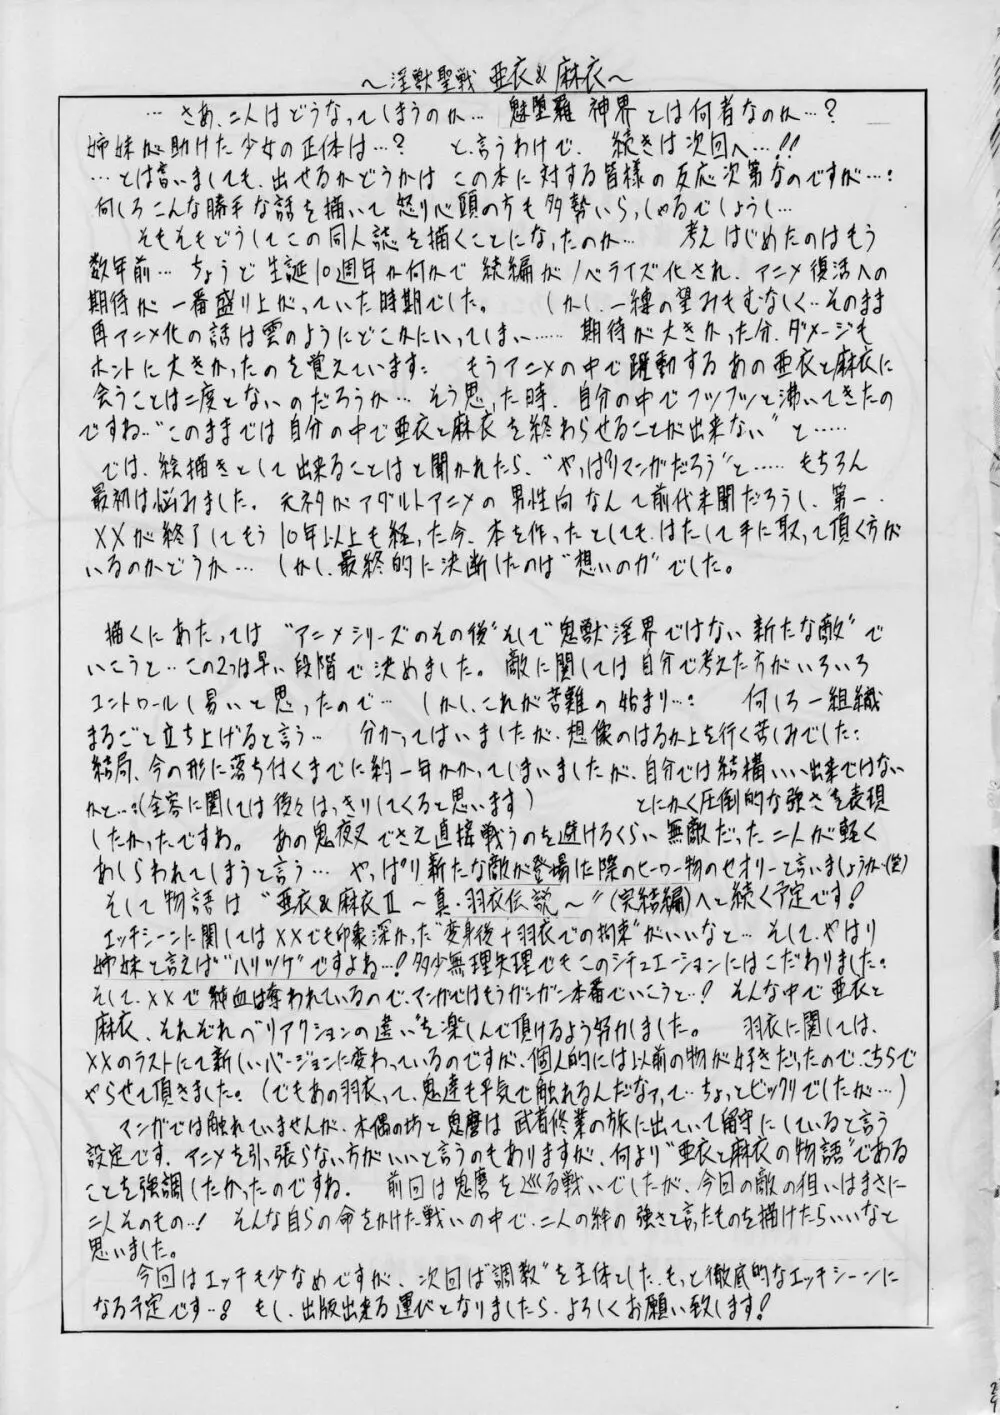 ～淫獣聖戦 亜衣&麻衣～
…さあ、二人はどうなってしまうのか… 魅堕羅 神界とは何者なのか…?
姉妹が助けた少女の正体は…? と、言うわけで、続きは次回へ…!!
…とは言いましても、出せるかどうかは この本に対する皆様の反応次第なのですが…:
何しろこんな勝手な話を描いて 怒り心頭の方も多勢いらっしゃるでしょうし…
そもそもどうしてこの同人誌を描くことになったのか… 考えはじめたのはもう
数年前… ちょうど 生誕10週年か何かで 続編がノベライズ化され、アニメ復活への
期待が 一番盛り上がっていた時期でした。 しかし、一縷の望みもむなしく…そのまま
再アニメ化の話は雲のようにどこかにいってしまい…… 期待が大きかった分、ダメージも
ホントに大きかったのを覚えています: もうアニメの中で躍動する あの亜衣と麻衣に
会うことは二度とないのだろうか… そう思った時、自分の中でフツフツと沸いてきたの
ですね…"このままでは自分の中で亜衣と麻衣を終わらせることが出来ない"と……
では、絵描きとして出来ることはと聞かれたら、"やっぱりマンガだろう"と…… もちろん
最初は悩みました。元ネタがアダルトアニメの男性向なんて前代未聞だろうし、第一、
XXが終了してもう10年以上も経った今、本を作ったとしても、はたして手に取って頂く方が
いるのかどうか… しかし、最終的に決断したのは"想いの力"でした。
描くにあたっては "アニメシリーズのその後"そして"鬼獣淫界ではない新たな敵"で
いこうと…この2つは早い段階で決めました。敵に関しては自分で考えた方がいろいろ
コントロールし易いと思ったので… しかし、これが苦難の始まり…: 何しろ一組織
まるごと立ち上げると言う… 分かってはいましたが、想像のはるか上を行く苦しみでした:
結局、今の形に落ち付くまでに約一年かかってしまいましたが、自分では結構いい出来ではない
かと…:(全容に関しては後々はっきりしてくると思います) とにかく圧倒的な強さを表現
したかったですね。 あの鬼夜叉でさえ直接戦うのを避けるくらい無敵だった二人が軽く
あしらわれてしまうと言う… やっぱり新たな敵が登場した際のヒーロー物のセオリーと言いましょうか(笑)
そして物語は"亜衣&麻衣II ～真・羽衣伝説～"(完結編)へと続く予定です!
エッチシーンに関してはXXでも印象深かった"変身後+羽衣での拘束"がいいなと… そして、やはり
姉妹と言えば"ハリツケ"ですよね…!多少無理矢理でもこのシチュエーションにはこだわりました:
そして、XXで純血は奪われているので、マンガではもうガンガン本番でいこうと…! そんな中で亜衣と
麻衣、それぞれ"リアクションの違い"を楽しんで頂けるよう努力しました。 羽衣に関しては、
XXのラストにて新しいバージョンに変わっているのですが、個人的には以前の物が好きだったのでこちらで
やらせて頂きました。(でもあの羽衣って、鬼達も平気で触れるんだなァって…ちょっとビックリでしたが…)
マンガでは触れていませんが、木偶の坊と鬼麿は 武者修業の旅に出ていて留守にしていると言う
設定です。アニメを引っ張らない方がいいと言うのもありますが、何より"亜衣と麻衣の物語"である
ことを強調したかったのですね。 前回は鬼麿を巡る戦いでしたが、今回の敵の狙いはまさに
二人そのもの…! そんな自らの命をかけた戦いの中で、二人の絆の強さと言ったものを描けたらいいなと
思いました。
今回はエッチも少なめですが、次回は"調教"を主体とした、もっと徹底的なエッチシーンに
なる予定です…! もし、出版出来る運びとなりましたら、よろしくお願い致します!
24